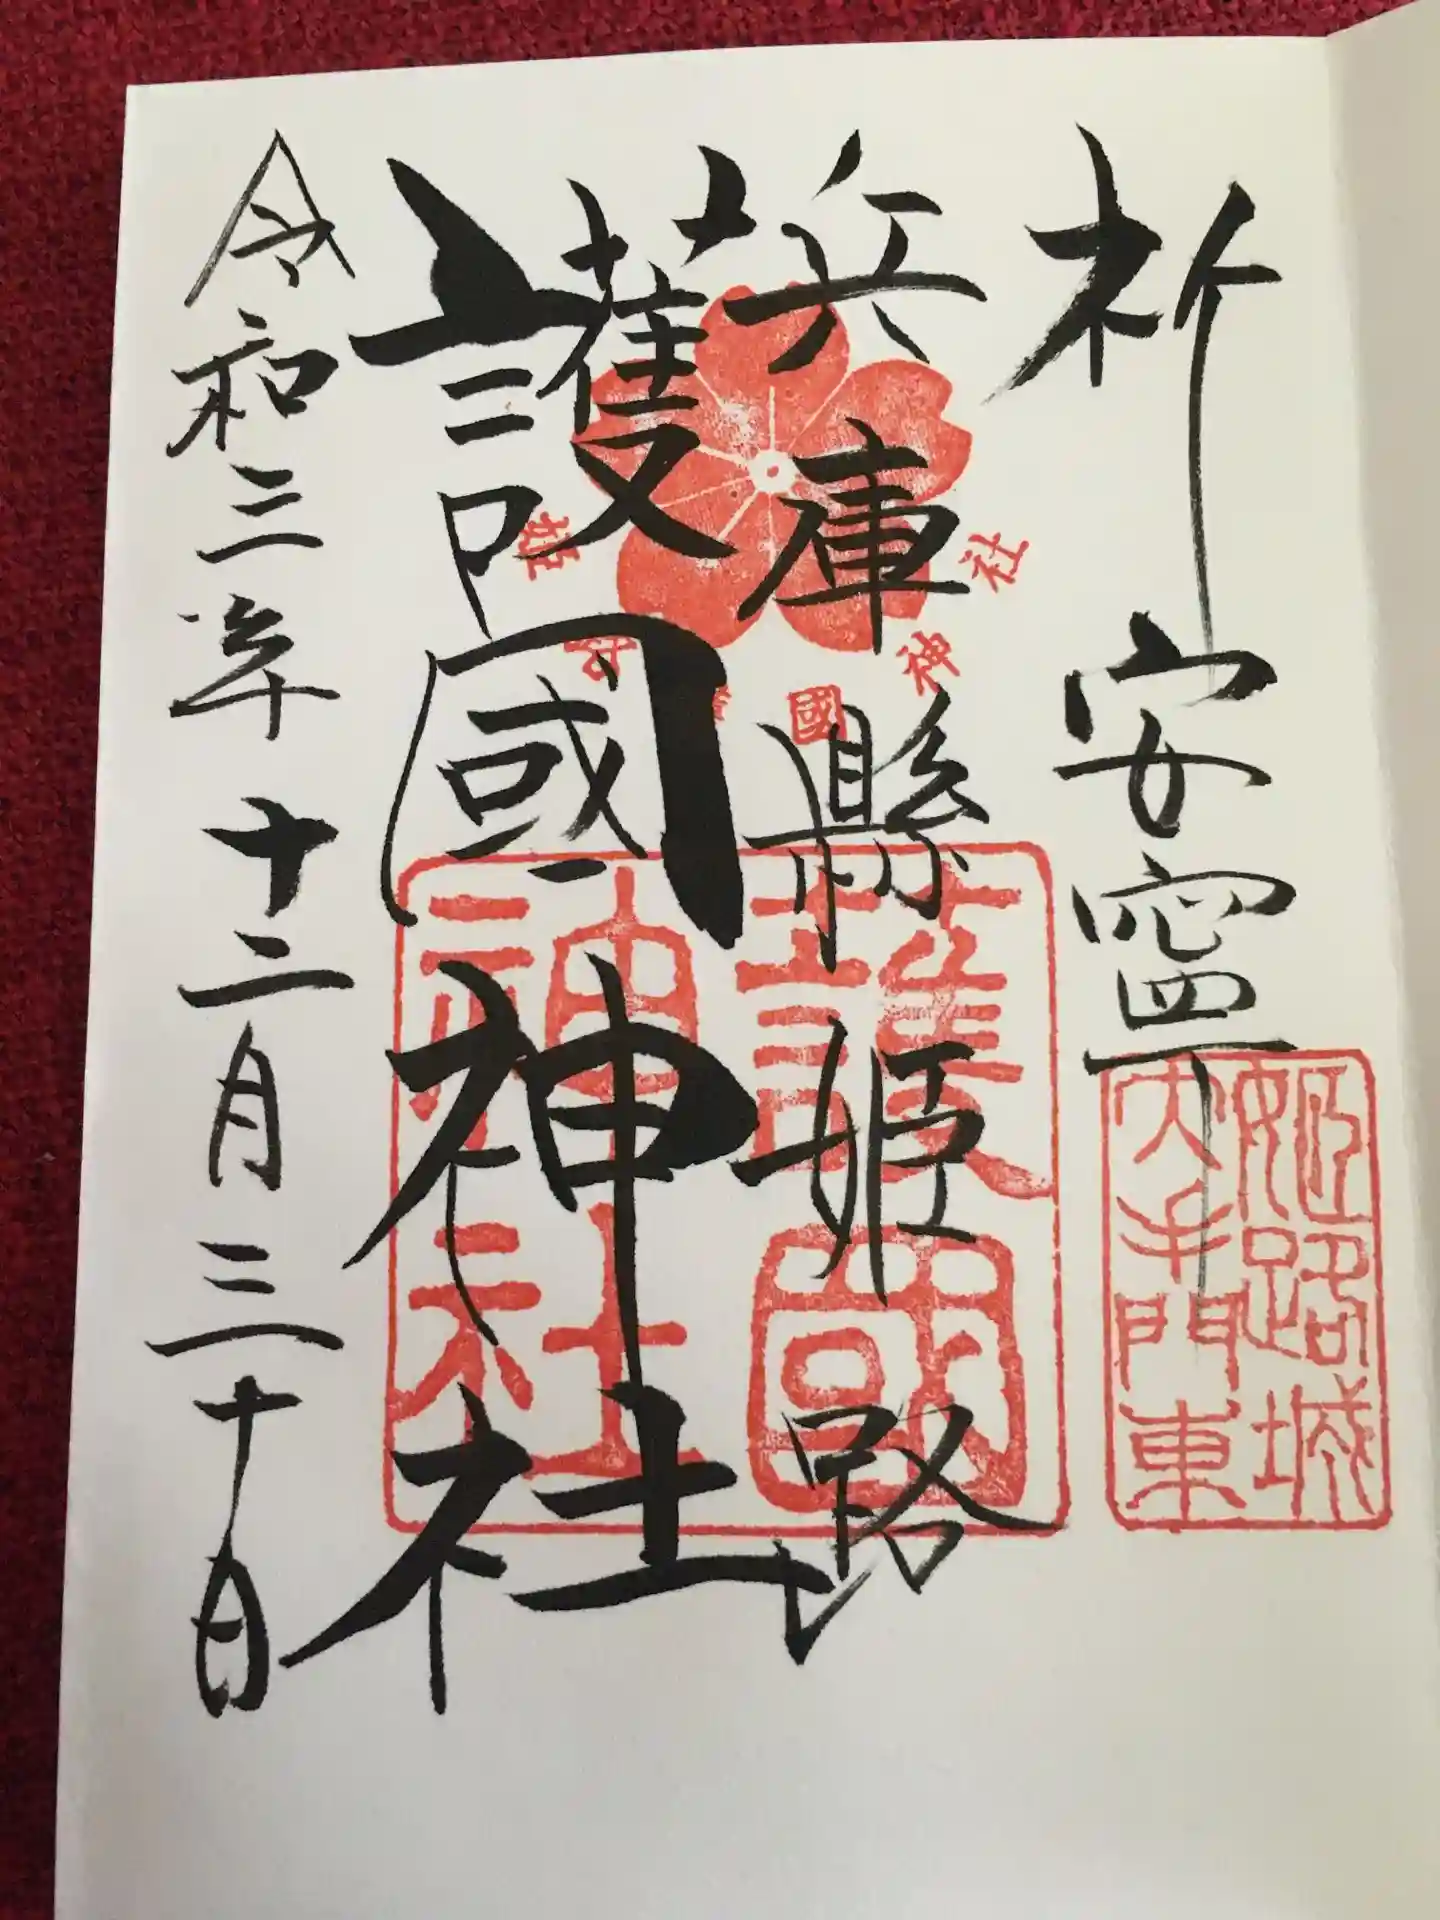 祈 安寧
兵庫縣姫路
護國神社
令和三年十二月三十日
姫路護國神社
護國神社
姫路城
大手門東